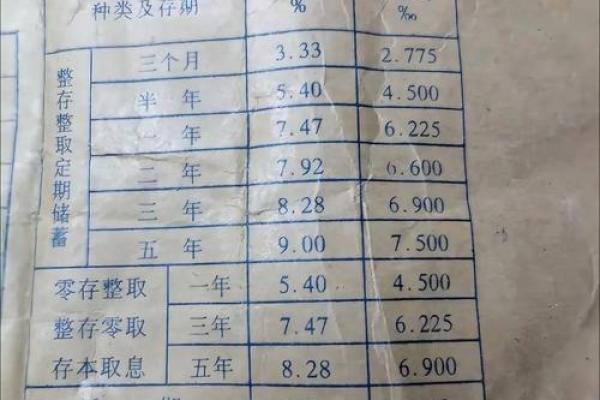 种类及存期 % ‰
整存整取定期储蓄
三个月 3.33 2.775
半年 5.40 4.500
一年 7.47 6.225
二年 7.92 6.600
三年 8.28 6.900
五年 9.00 7.500
零存整取 一年 5.40 4.500
整存零取 三年 7.47 6.225
存本取息 五年 8.28 6.900
期